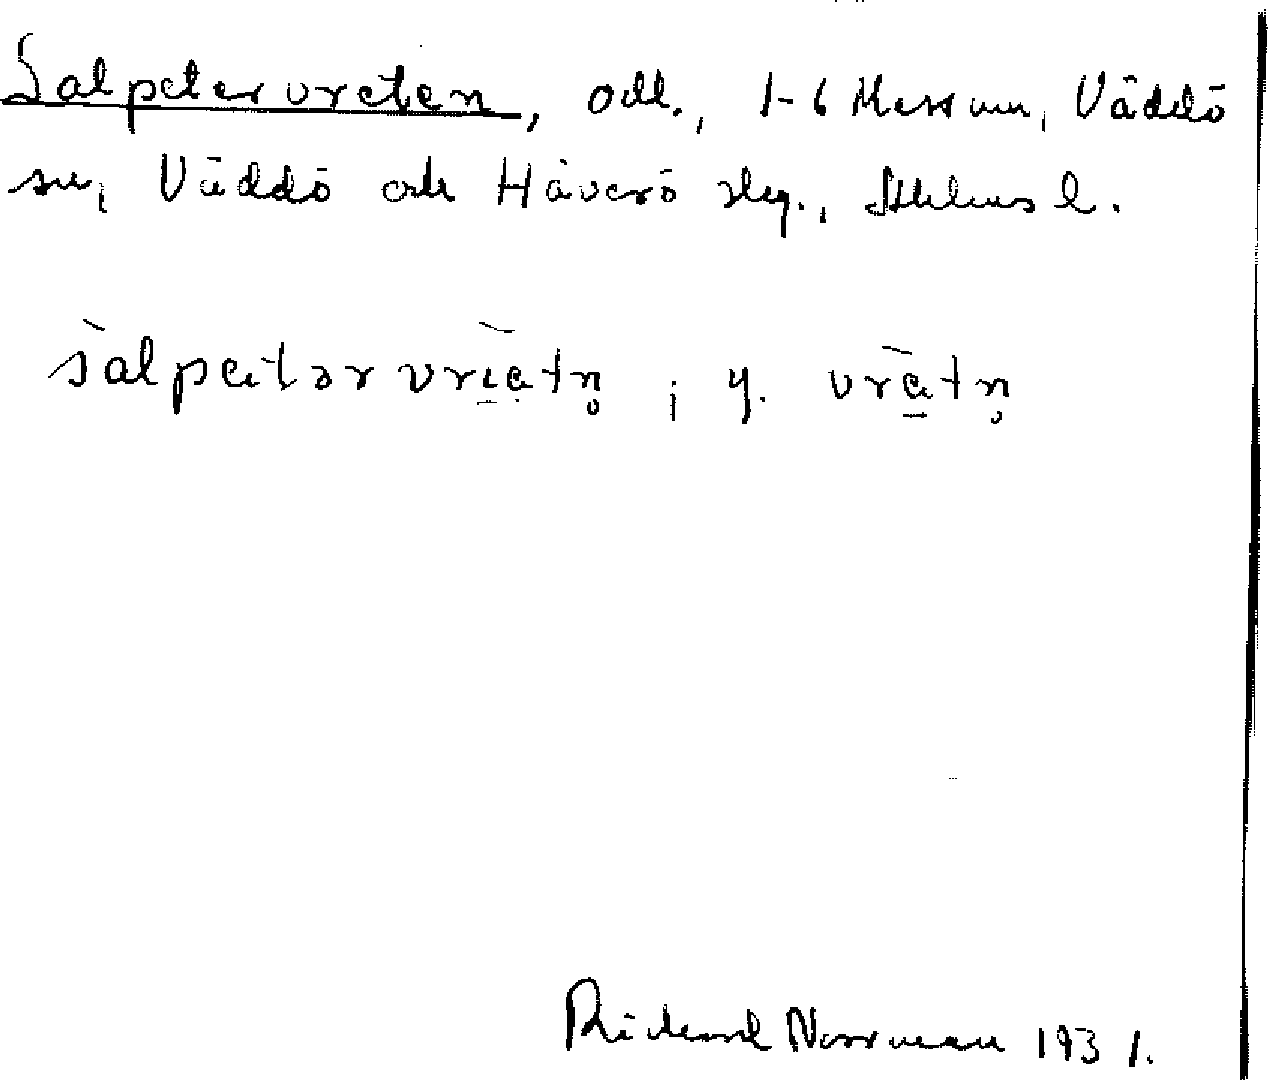 Salpetervreten, odl., 1-6 Massum, Väddö
sn, Väddö och Häverö skg., Sthlms l.
sàlpeitərvrietn̥ ; y. vrètn̥
Rickard Norrman 1931.